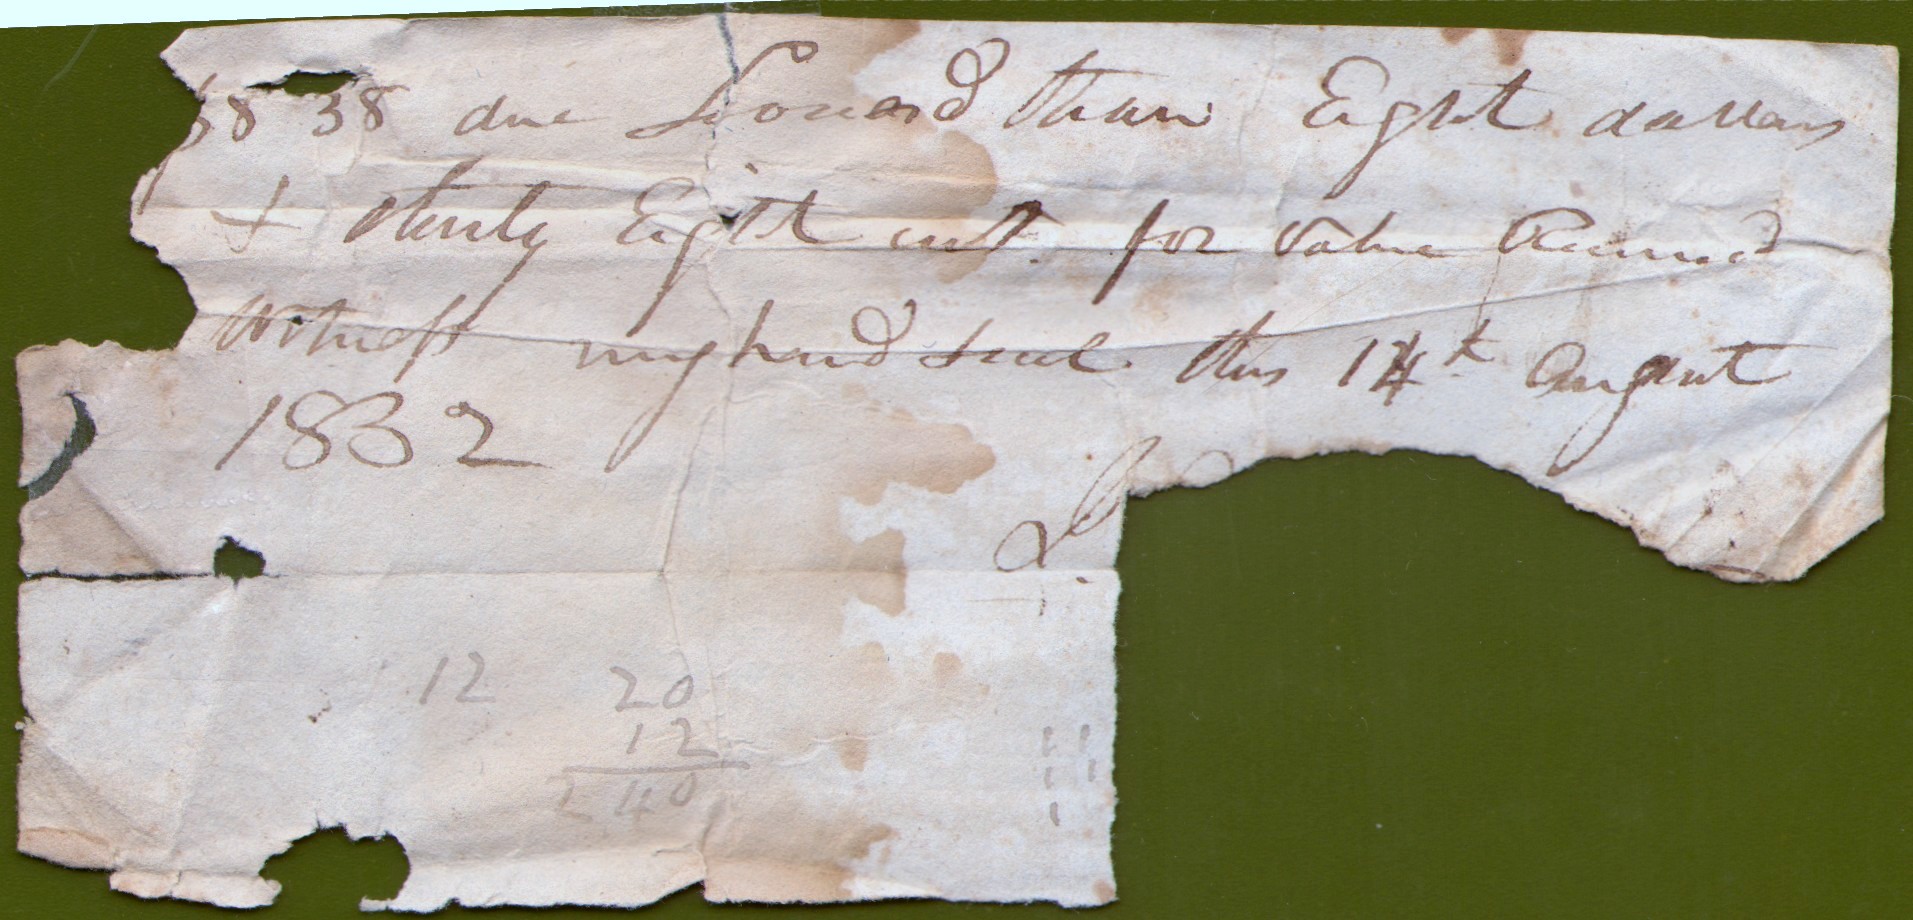 $8 38 due Leonard Than Eight dollars
& thirty Eight cnts for Value Received
Witness my hand & seal this 14th August
1832
L.
12 20
12
240